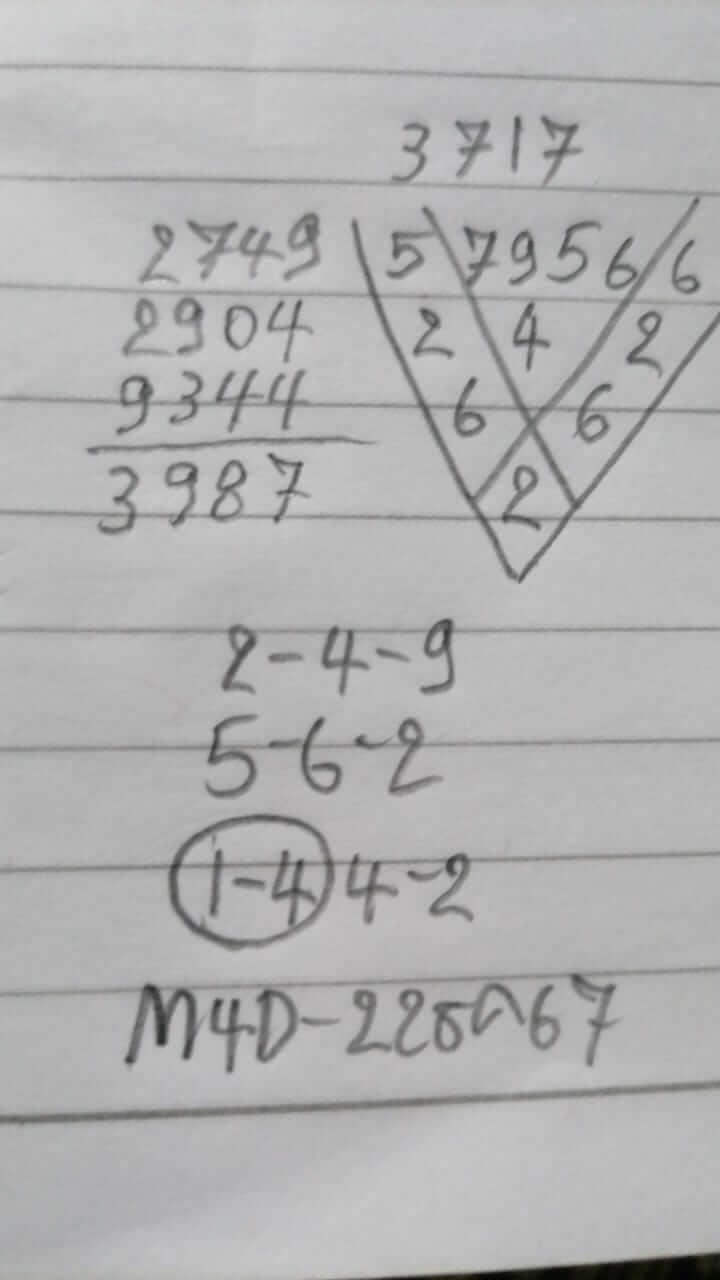 3717
2749 5 7956 6
2904 2 4 2
9344 6 6
3987 2
2-4-9
5-6-2
1-4 4-2